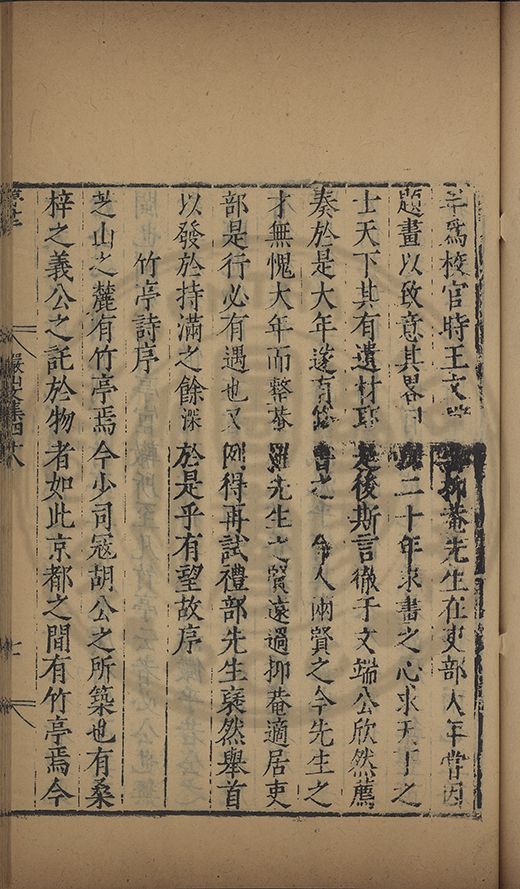 年為校官時王文端抑菴先生在吏部大年嘗因
題畫以致意其畧曰二十年求畫之心求天下之
士天下其有遺材耶是後斯言徹于文端公欣然薦
奏於是大年遂有之人兩賢之今先生之
才無愧大年而整菴羅先生之賢遠過抑菴適居吏
部是行必有遇也又例得再試禮部先生裒然舉首
以發於持滿之餘深於是乎有望故序
竹亭詩序
芝山之麓有竹亭焉今少司冦胡公之所築也有桑
梓之義公之託於物者如此京都之間有竹亭焉今